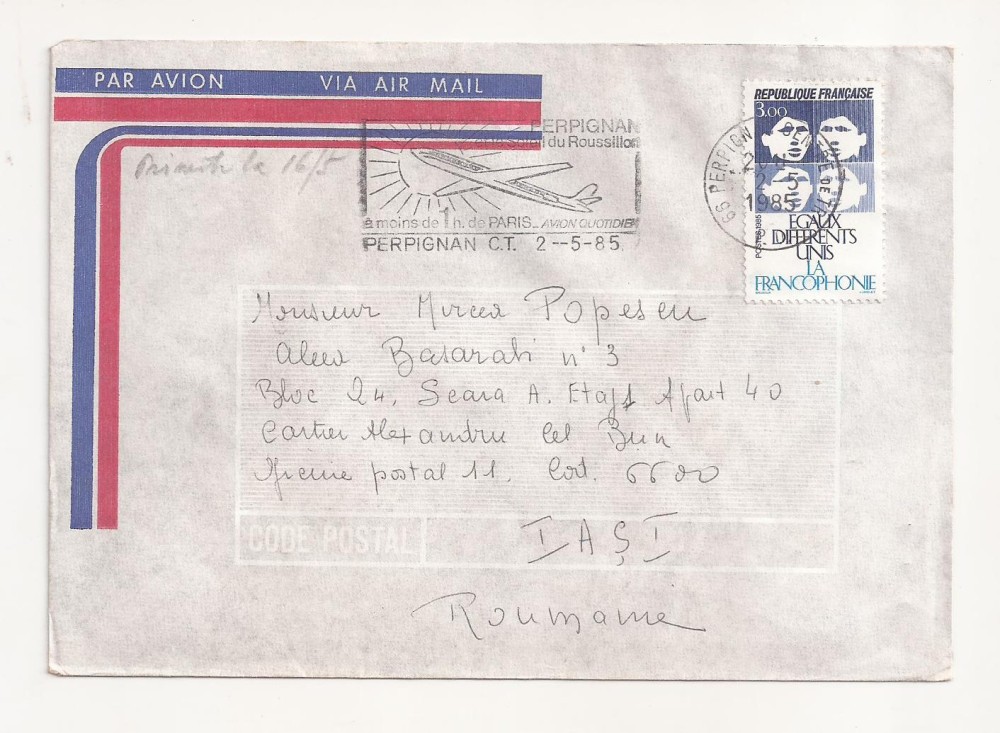 PAR AVION VIA AIR MAIL
Primita la 16/5
PERPIGNAN
du Roussillon
à moins de 1 h. de PARIS_ AVION QUOTIDIEN
PERPIGNAN C.T. 2--5-85
REPUBLIQUE FRANÇAISE
3.00
66 PERPIGNAN
2-5
1985
POSTES 1985
EGAUX
DIFFERENTS
UNIS
LA
FRANCOPHONIE
Monsieur Mircea Popescu
Aleea Basarabi n° 3
Bloc 24, Scara A. Etaj 1 Apart 40
Cartier Alexandru Cel Bun
Oficiu postal 11. Cod. 6600
CODE POSTAL
IAŞI
Roumanie